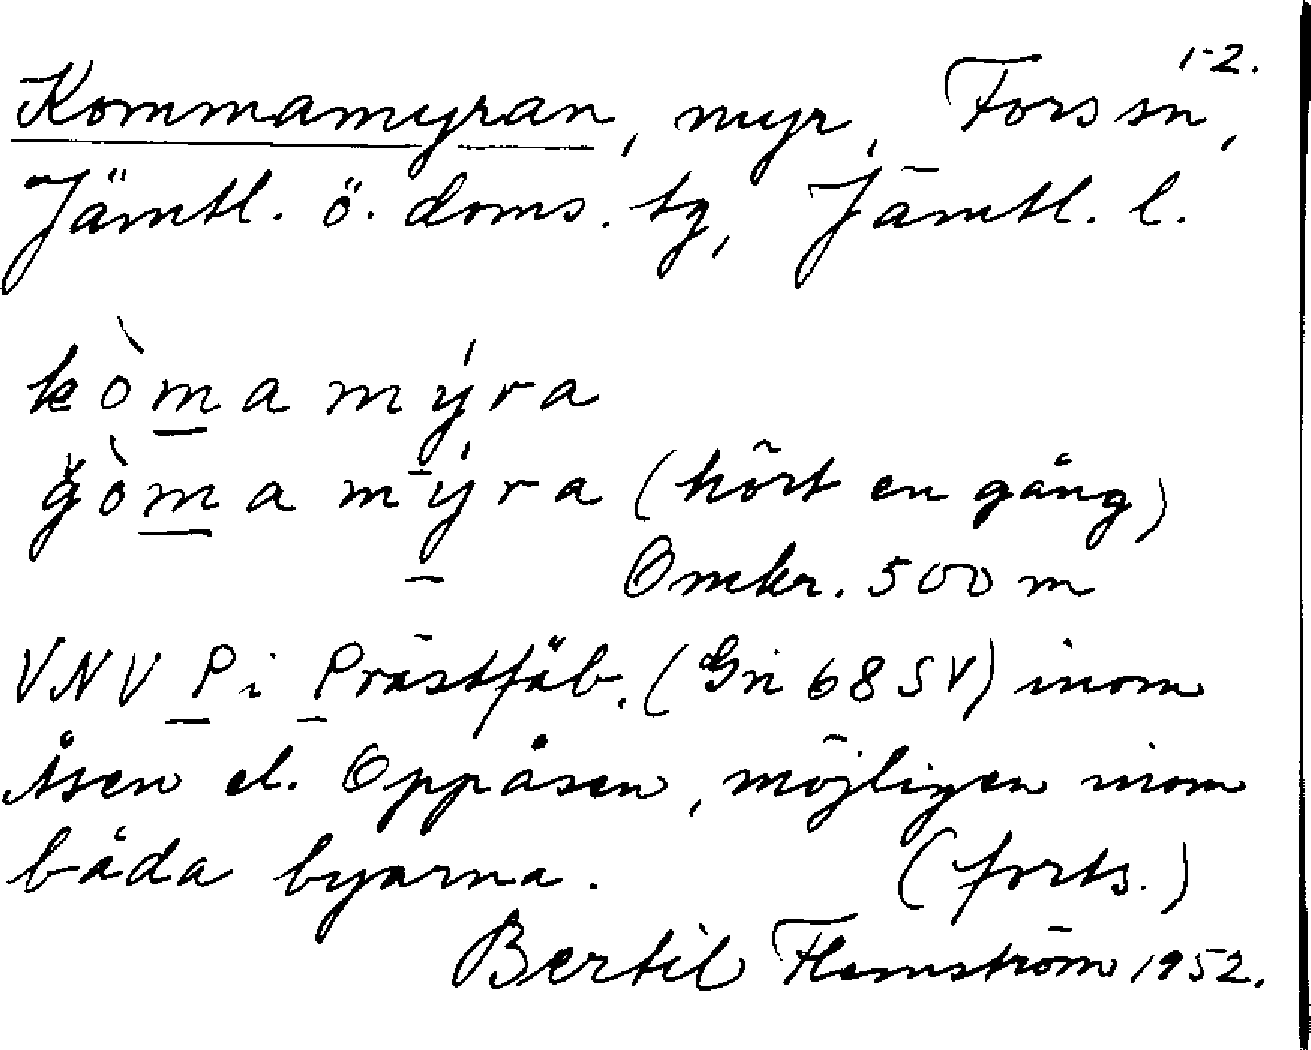 1-2.
Kommamyran, myr, Fors sn,
Jämtl. ö. doms. tg, Jämtl. l.
kòmamýra
gòmamýra (hört en gång)
Omkr. 500 m
VNV P i Prästfäb. (Gn 68 SV) inom
Åsen el. Oppåsen, möjligen inom
båda byarna. (forts.)
Bertil Flemström 1952.